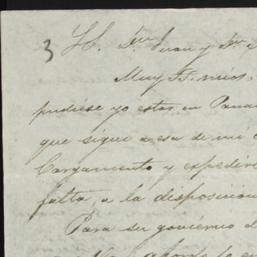 3
H. Sres Juan y
Muy SS. mios.
pudiese yo estar en Pana
que sigue a esa de mi
Cargamento y expedire
falta, a la disposicion
Para su govierno d